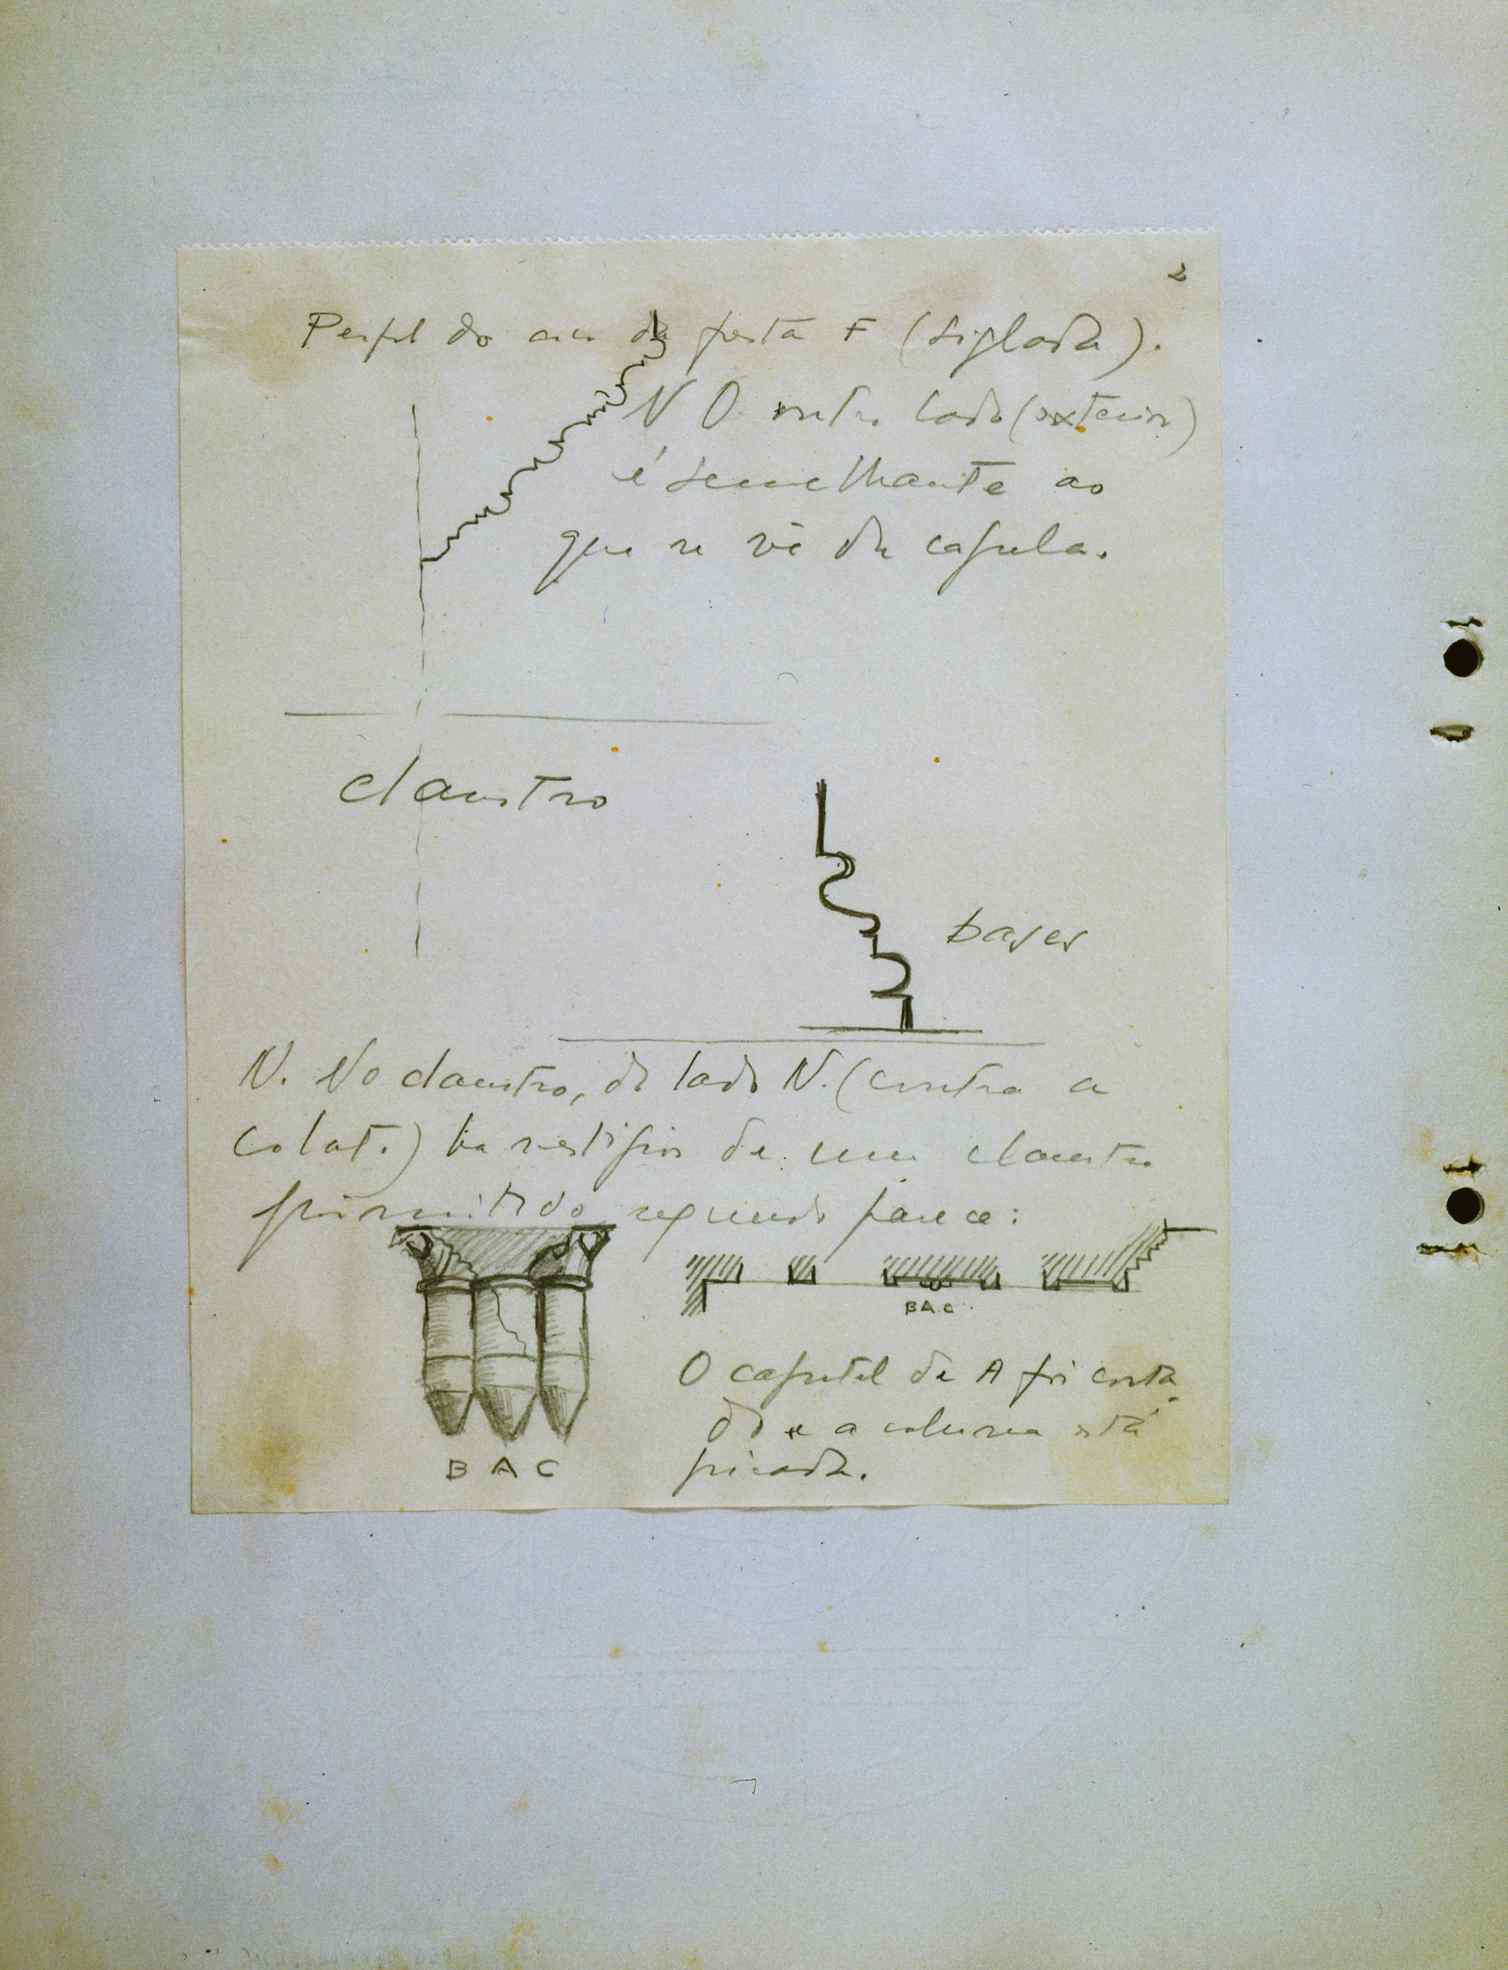 2
Perfil do arco da porta F (siglada).
N O outro lado (exterior)
é semelhante ao
que se vê da capela.
claustro
bases
N. No claustro, do lado N. (contra a
colat.) ha vestigios de um claustro
primitivo segundo parece:
B A C
O capitel de A foi corta
do e a coluna está
picada.
B A C